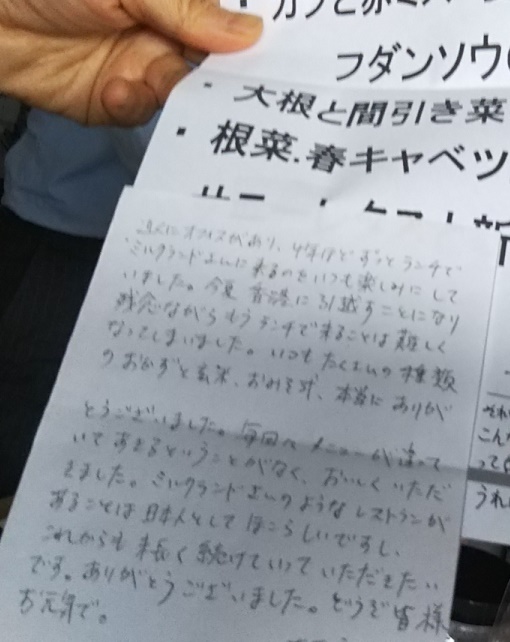 フダンソウ
・大根と間引き菜
・根菜.春キャベツ
近くにオフィスがあり、4年ほどずっとランチで
ミルクランドさんに来るのをいつも楽しみにして
いました。今夏 香港に引越すことになり
残念ながらもうランチで来ることは難しく
なってしまいました。いつもたくさんの種類
のおかずと玄米、おみそ汁、本当にありが
とうございました。毎回へメニューが違って
いてあきるということがなく、おいしくいただ
きました。ミルクランドさんのようなレストランが
あることは日本人としてほこらしいですし、
これからも末長く続けていっていただきたい
です。ありがとうございました。どうぞ皆様
お元気で。
こん
うれ